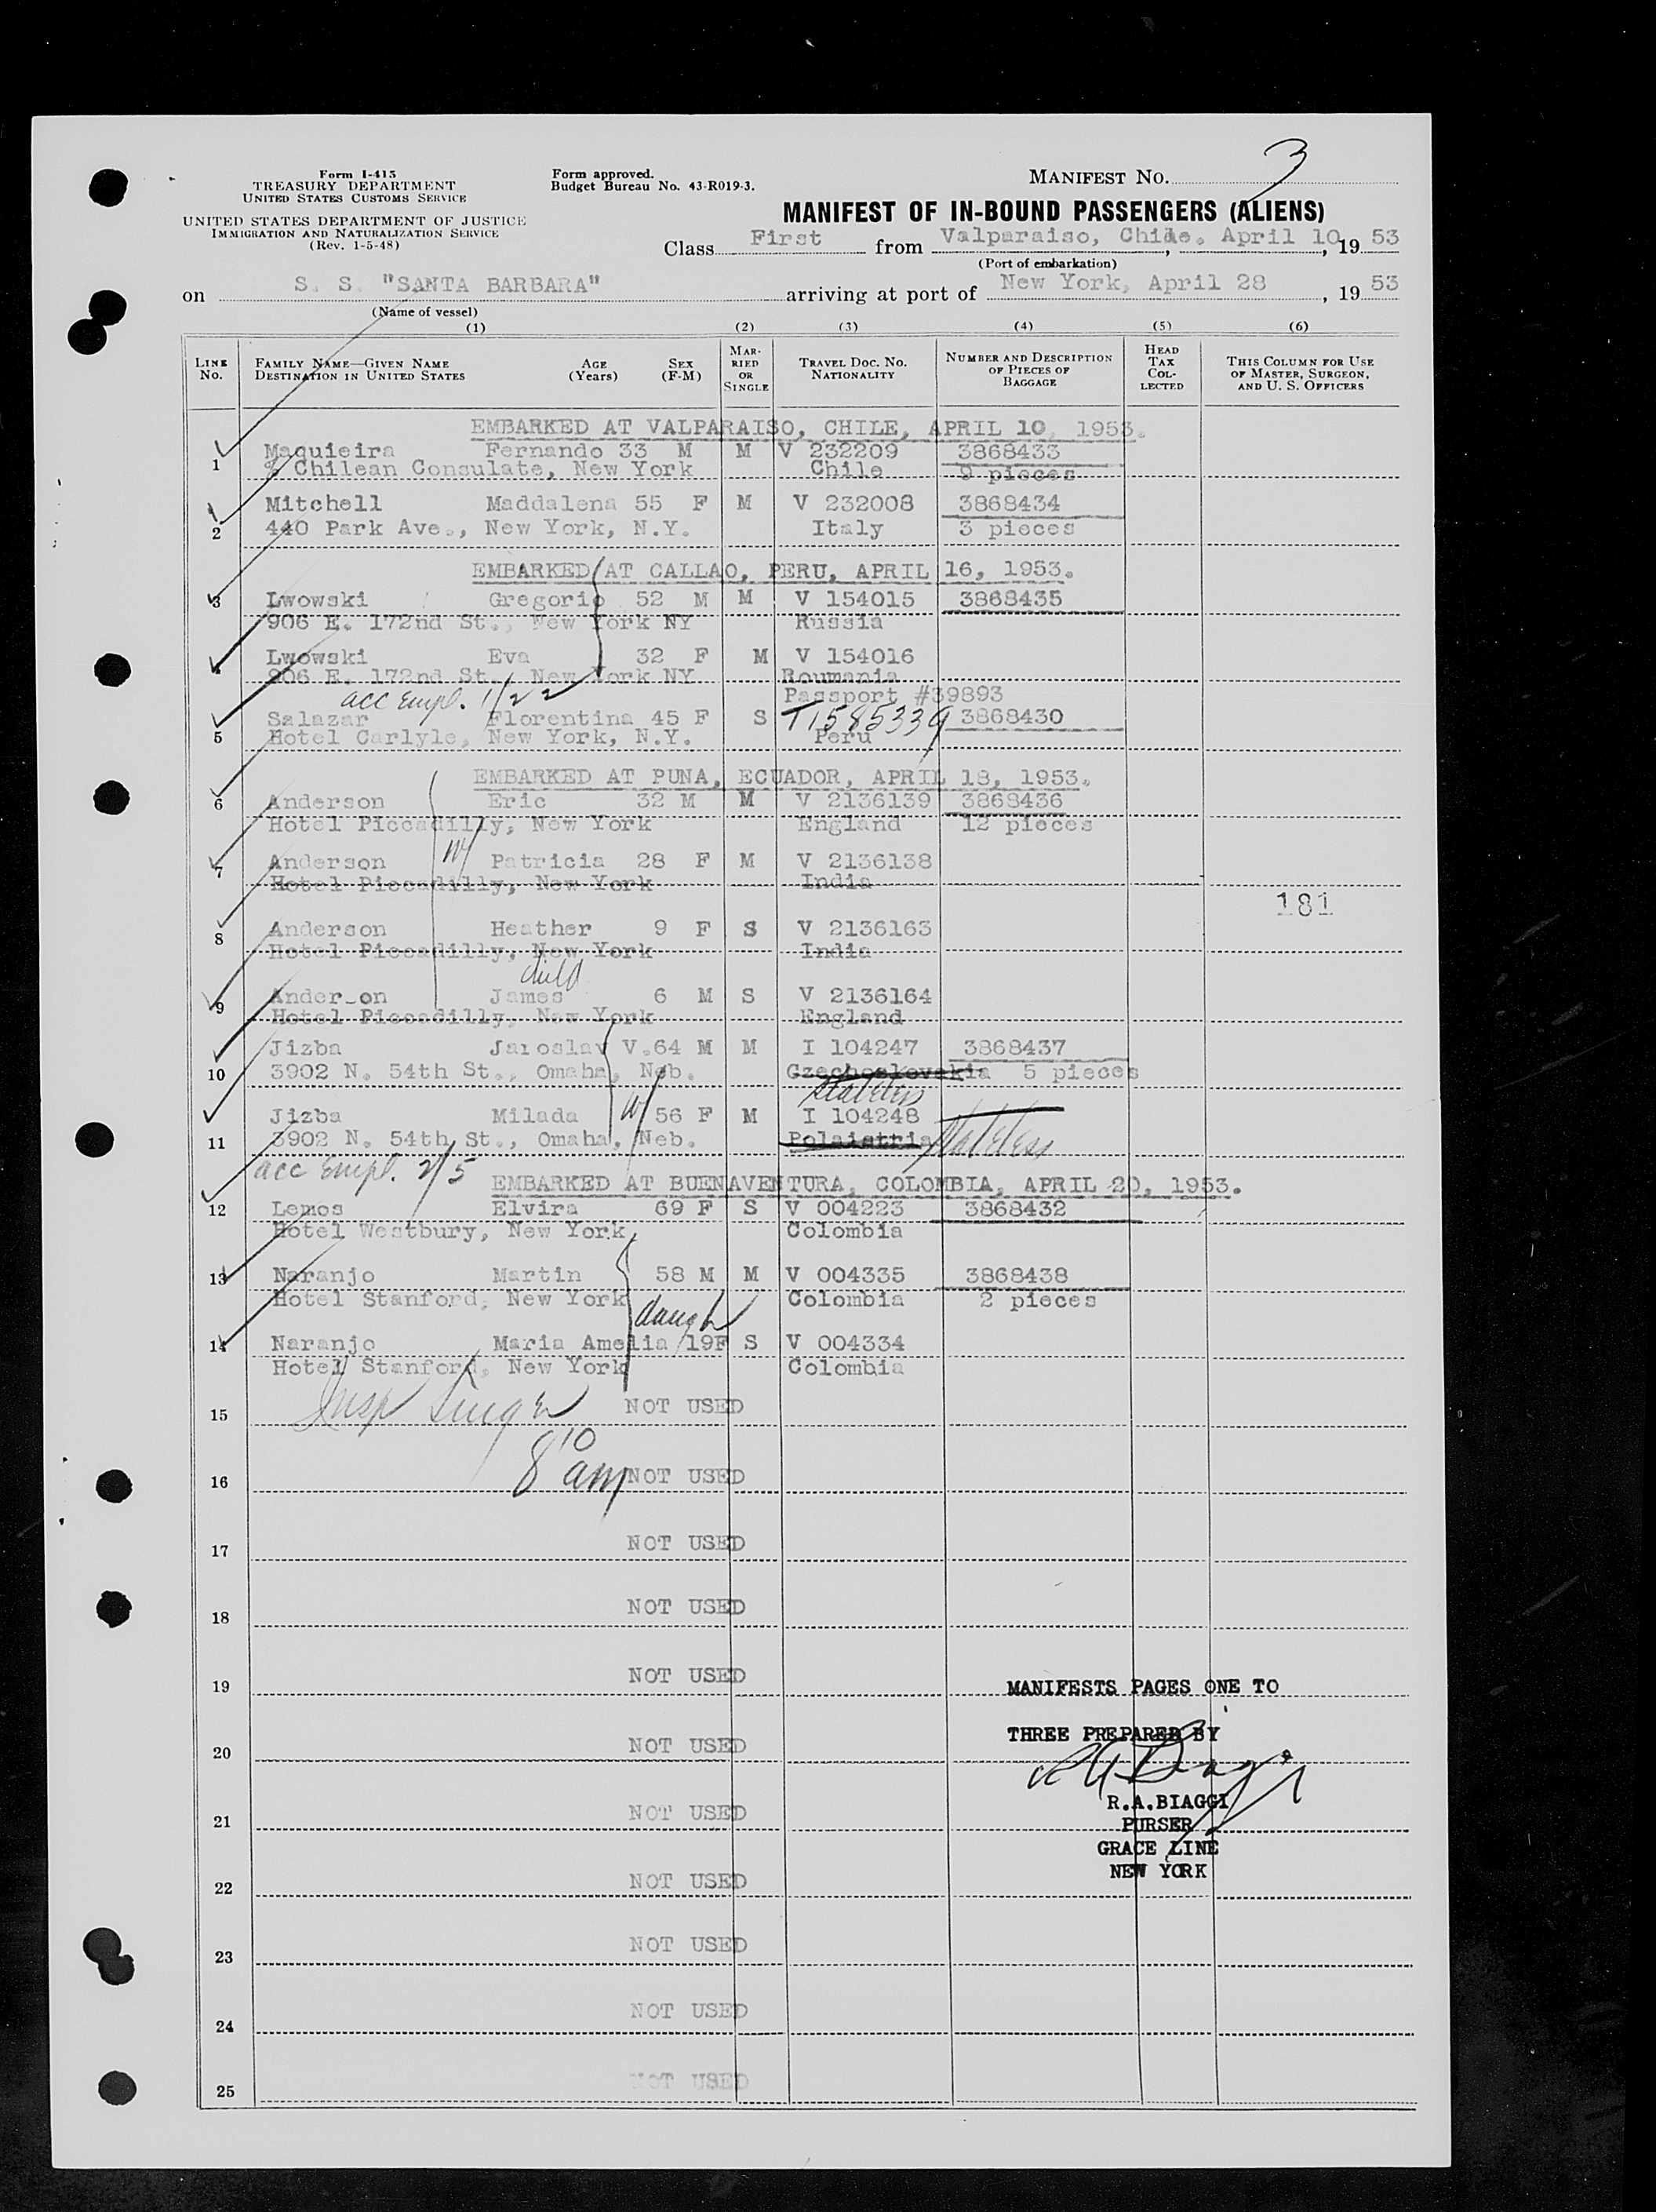 Form I-415
TREASURY DEPARTMENT
UNITED STATES CUSTOMS SERVICE
UNITED STATES DEPARTMENT OF JUSTICE
IMMIGRATION AND NATURALIZATION SERVICE
(Rev. 1-5-48)
Form approved.
Budget Bureau No. 43-R019-3.
MANIFEST NO. 3
MANIFEST OF IN-BOUND PASSENGERS (ALIENS)
Class First from Valparaiso, Chile. April 10, 19 53
(Port of embarkation)
on S. S. "SANTA BARBARA" arriving at port of New York, April 28, 19 53
(Name of vessel)
(1) (2) (3) (4) (5) (6)
LINE NO. FAMILY NAME—GIVEN NAME DESTINATION IN UNITED STATES AGE (Years) SEX (F-M) MARRIED OR SINGLE TRAVEL DOC. NO. NATIONALITY NUMBER AND DESCRIPTION OF PIECES OF BAGGAGE HEAD TAX COLLECTED THIS COLUMN FOR USE OF MASTER, SURGEON, AND U. S. OFFICERS
EMBARKED AT VALPARAISO, CHILE, APRIL 10, 1953.
1 Maquieira Fernando 33 M M V 232209 3868433
% Chilean Consulate, New York Chile 9 pieces
2 Mitchell Maddalena 55 F M V 232008 3868434
440 Park Ave., New York, N.Y. Italy 3 pieces
EMBARKED AT CALLAO, PERU, APRIL 16, 1953.
3 Lwowski Gregorio 52 M M V 154015 3868435
906 E. 172nd St., New York NY Russia
Lwowski Eva 32 F M V 154016
906 E. 172nd St., New York NY Roumania
acc Empl. 1/22 Passport #39893
5 Salazar Florentina 45 F S T1585339 3868430
Hotel Carlyle, New York, N.Y. Peru
EMBARKED AT PUNA, ECUADOR, APRIL 18, 1953.
6 Anderson Eric 32 M M V 2136139 3868436
Hotel Piccadilly, New York England 12 pieces
7 Anderson W/ Patricia 28 F M V 2136138
Hotel Piccadilly, New York India
181
8 Anderson Heather 9 F S V 2136163
Hotel Piccadilly, New York India
child
9 Anderson James 6 M S V 2136164
Hotel Piccadilly, New York England
10 Jizba Jaroslav V. 64 M M I 104247 3868437
3902 N. 54th St., Omaha, Neb. Czechoslovakia 5 pieces
stateless
11 Jizba Milada W/ 56 F M I 104248
3902 N. 54th St., Omaha, Neb. stateless
acc Empl. 2/5
EMBARKED AT BUENAVENTURA, COLOMBIA, APRIL 20, 1953.
12 Lemos Elvira 69 F S V 004223 3868432
Hotel Westbury, New York Colombia
13 Naranjo Martin 58 M M V 004335 3868438
Hotel Stanford, New York Colombia 2 pieces
daugh
14 Naranjo Maria Amelia 19F S V 004334
Hotel Stanford, New York Colombia
15 Insp Singer NOT USED
16 8 10 am NOT USED
17 NOT USED
18 NOT USED
19 NOT USED MANIFESTS PAGES ONE TO
20 NOT USED THREE PREPARED BY
R.A.BIAGGI
21 NOT USED PURSER
GRACE LINE
22 NOT USED NEW YORK
23 NOT USED
24 NOT USED
25 NOT USED